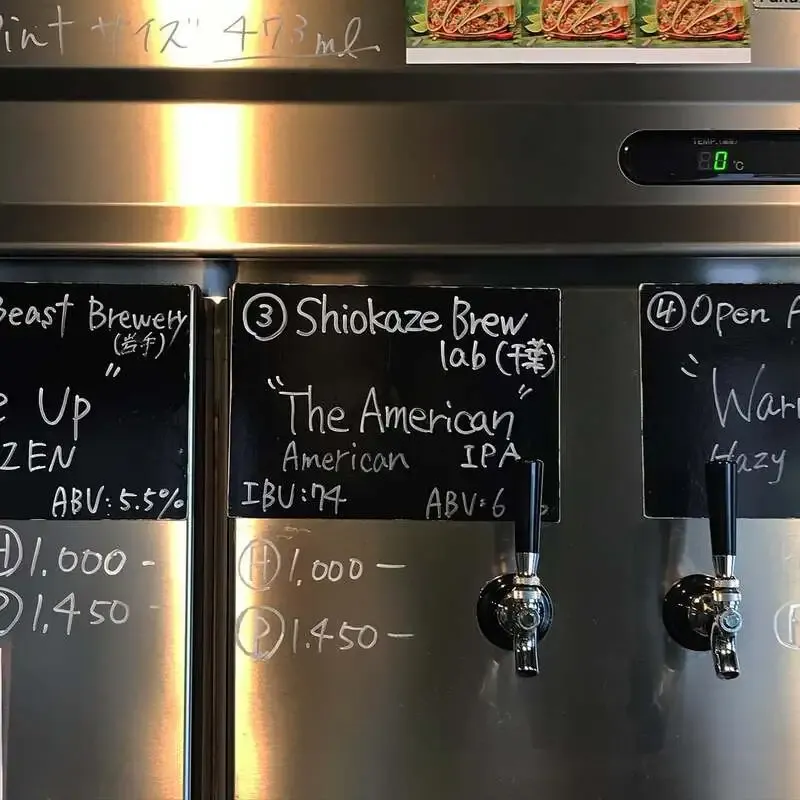 Pint サイズ 473ml
TEMP.(温度)
0 °C
Beast Brewery
(岩手)
Up"
ZEN
ABV: 5.5%
Ⓗ 1.000 -
Ⓟ 1.450 -
③ Shiokaze Brew
lab (千葉)
"The American"
American IPA
IBU: 74 ABV: 6 %
Ⓗ 1.000 -
Ⓟ 1.450 -
④ Open
"
Hazy